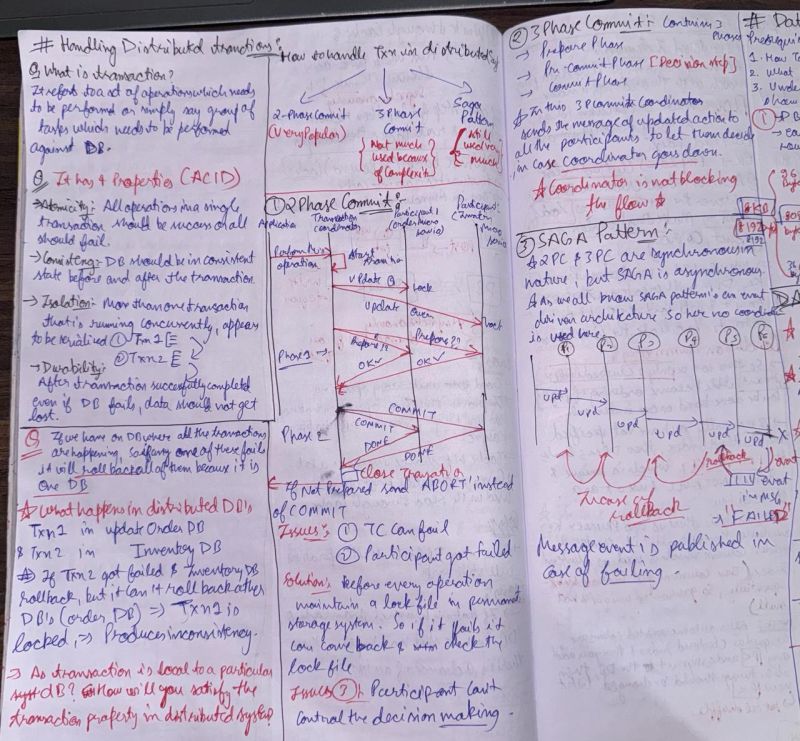 # Handling Distributed tranctions :
Q What is transaction?
It refers to a set of operations which needs
to be performed or simply say group of
tasks which needs to be performed
against DB.
Q It has 4 Properties (ACID)
→ Atomicity: All operations in a single
transaction should be success or all
should fail.
→ : DB should be in consistent
state before and after the transaction.
→ Isolation: More than one transaction
that is running concurrently, appear
to be serialized ① Txn1
② Txn2
→ Durability:
After transaction successfully completed
even if DB fails, data should not get
lost.
Q If we have on DB where all the transactions
are happening, so if any one of these fails
it will rollback all of them because it is
One DB
What happens in distributed DB's
Txn1 in update Order DB
& Txn2 in Inventory DB
If Txn2 got failed & Inventory DB
rollback, but it can't roll back other
DB's (order DB) ⇒ Txn1 is
locked, ⇒ Produces inconsistency.
⇒ As transaction is local to a particular
DB? How will you satisfy the
transaction property in distributed system
How to handle Txn in distributed
2-Phase Commit
(Very Popular)
3 Phase
Commit
{ Not much
used because
of complexity }
Saga
Pattern
{ Still
used very
much }
① 2 Phase Commit :
Application
Transaction
coordinator
Participant 1
Participant 2
operation
Start
Update
Lock
Update
Lock
Phase 1 →
Prepare ?
Prepare ?
OK ✓
OK ✓
Phase 2
COMMIT
COMMIT
DONE
DONE
Close Transation
If Not Prepared send 'ABORT' instead
of COMMIT
Issues: ① TC can fail
② Participant got failed
Solution: before every operation
maintain a lock file in permanent
storage system. So if it fails it
can come back & check the
lock file
Issues ③: Participant can't
control the decision making.
② 3 Phase Commit: Contains 3
Phases
→ Prepare Phase
→ Pre-commit Phase [Decision step]
→ Commit Phase
In this 3P commit Coordinator
sends the message of updated action to
all the participants to let them decide
in case coordinator goes down.
Coordinator is not blocking
the flow
③ SAGA Pattern :
2PC & 3PC are synchronous in
nature, but SAGA is asynchronous.
As we all know SAGA pattern is an event
driven architecture so here no coordinator
is used here.
P1 P2 P3 P4 P5 P6
upd
upd
upd
upd
upd
upd
X
rollback
In case of
rollback
event
in msg
"FAILED"
Message event is published in
case of failing.
# Dat
1. How To
2. What
3. Unde
8KB
8192